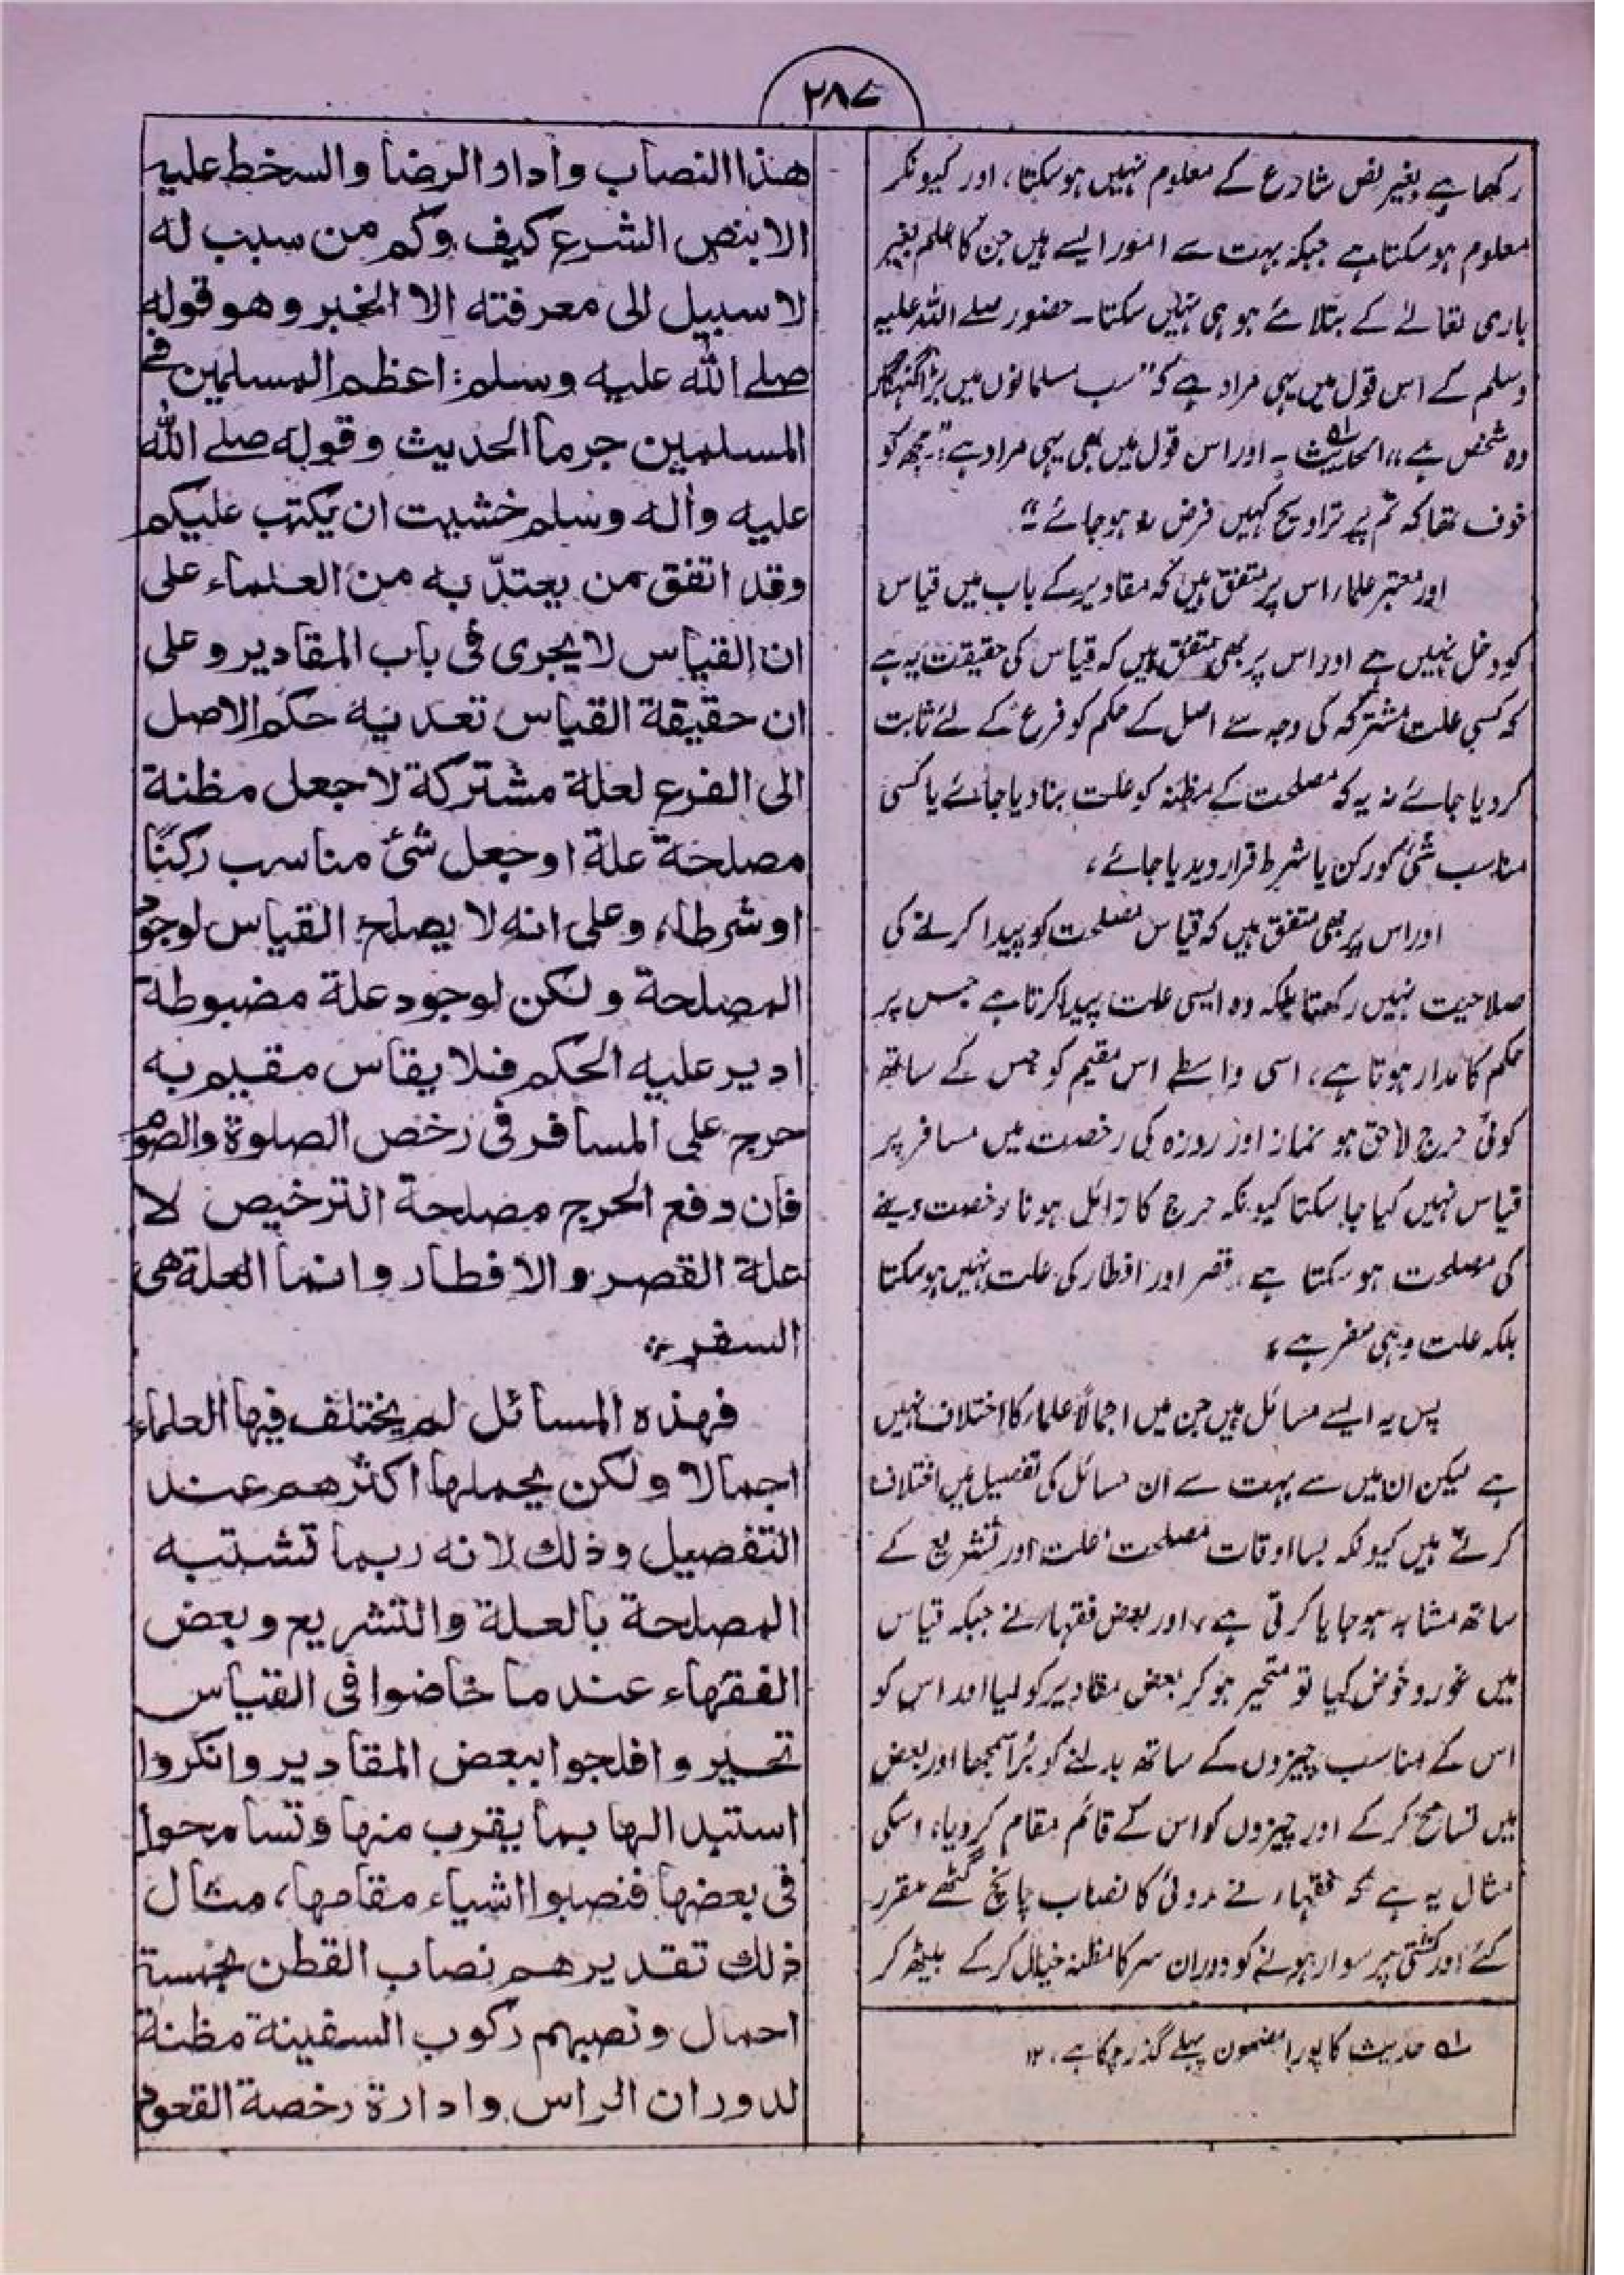 ۲۸۷
رکھا ہے بغیر نص شارع کے معلوم نہیں ہو سکتا، اور کیونکر
معلوم ہو سکتا ہے جبکہ بہت سے امور ایسے ہیں جن کا علم بغیر
باری تعالےٰ کے بتلائے ہو ہی نہیں سکتا۔ حضور صلے اللہ علیہ
وسلم کے اس قول میں یہی مراد ہے کہ "سب مسلمانوں میں بڑا گنہگار
وہ شخص ہے" الحدیث ۔ اور اس قول میں بھی یہی مراد ہے:۔ "مجھ کو
خوف تھا کہ تم پر تراویح کہیں فرض نہ ہو جائے"۔
اور معتبر علماء اس پر متفق ہیں کہ مقادیر کے باب میں قیاس
کو دخل نہیں ہے اور اس پر بھی متفق ہیں کہ قیاس کی حقیقت یہ ہے
کہ کسی علت مشترکہ کی وجہ سے اصل کے حکم کو فرع کے لئے ثابت
کر دیا جائے نہ یہ کہ مصلحت کے مظنہ کو علت بنا دیا جائے یا کسی
مناسب شئ کو رکن یا شرط قرار دیدیا جائے،
اور اس پر بھی متفق ہیں کہ قیاس مصلحت کو پیدا کرنے کی
صلاحیت نہیں رکھتا بلکہ وہ ایسی علت پیدا کرتا ہے جس پر
حکم کا مدار ہوتا ہے، اسی واسطے اس مقیم کو جس کے ساتھ
کوئی حرج لاحق ہو نماز اور روزہ کی رخصت میں مسافر پر
قیاس نہیں کیا جا سکتا کیونکہ حرج کا زائل ہونا رخصت دینے
کی مصلحت ہو سکتا ہے، قصر اور افطار کی علت نہیں ہو سکتا
بلکہ علت وہی سفر ہے،
پس یہ ایسے مسائل ہیں جن میں اجمالاً علماء کا اختلاف نہیں
ہے لیکن ان میں سے بہت سے ان مسائل کی تفصیل میں اختلاف
کرتے ہیں کیونکہ بسا اوقات مصلحت علت اور تشریع کے
ساتھ مشابہ ہو جایا کرتی ہے، اور بعض فقہاء نے جبکہ قیاس
میں غور و خوض کیا تو متحیر ہو کر بعض مقادیر کو لیا اور اس کو
اس کے مناسب چیزوں کے ساتھ بدلنے کو بُرا سمجھا اور بعض
میں تسامح کر کے اور چیزوں کو اس کے قائم مقام کر دیا، اسکی
مثال یہ ہے کہ فقہاء نے روئی کا نصاب پانچ گٹھے مقرر
کئے اور کشتی پر سوار ہونے کو دوران سر کا مظنہ خیال کر کے بیٹھ کر
لہ حدیث کا پورا مضمون پہلے گذر چکا ہے، ۱۲
هذا النصاب وأداو الرضا والسخط عليه
الا بنص الشرع كيف وكم من سبب له
لا سبيل الى معرفته الا الخبر وهو قوله
صلے الله عليه وسلم: اعظم المسلمين فے
المسلمين جرما الحديث وقوله صلے الله
عليه واله وسلم خشيت ان يكتب عليكم
وقد اتفق من يعتدّ به من العلماء على
ان القياس لا يجرى فى باب المقادير وعلى
ان حقيقة القياس تعدية حكم الاصل
الى الفرع لعلة مشتركة لا جعل مظنة
مصلحة علة او جعل شئ مناسب ركنًا
او شرطا، وعلى انه لا يصلح القياس لوجود
المصلحة ولكن لوجود علة مضبوطة
ادير عليه الحكم فلا يقاس مقيم به
حرج على المسافر فى رخص الصلوة والصوم
فان دفع الحرج مصلحة الترخيص لا
علة القصر والافطار وانما العلة هى
السفر،
فهذه المسائل لم يختلف فيها العلماء
اجمالا ولكن يحملها اكثرهم عند
التفصيل وذلك لانه ربما تشتبه
المصلحة بالعلة والتشريع وبعض
الفقهاء عند ما خاضوا فى القياس
تحيروا فلجوا ببعض المقادير وانكروا
استبدالها بما يقرب منها وتسامحوا
فى بعضها فنصبوا اشياء مقامها، مثال
ذلك تقديرهم نصاب القطن بخمسة
احمال ونصبهم ركوب السفينة مظنة
لدوران الراس وادارة رخصة القعود